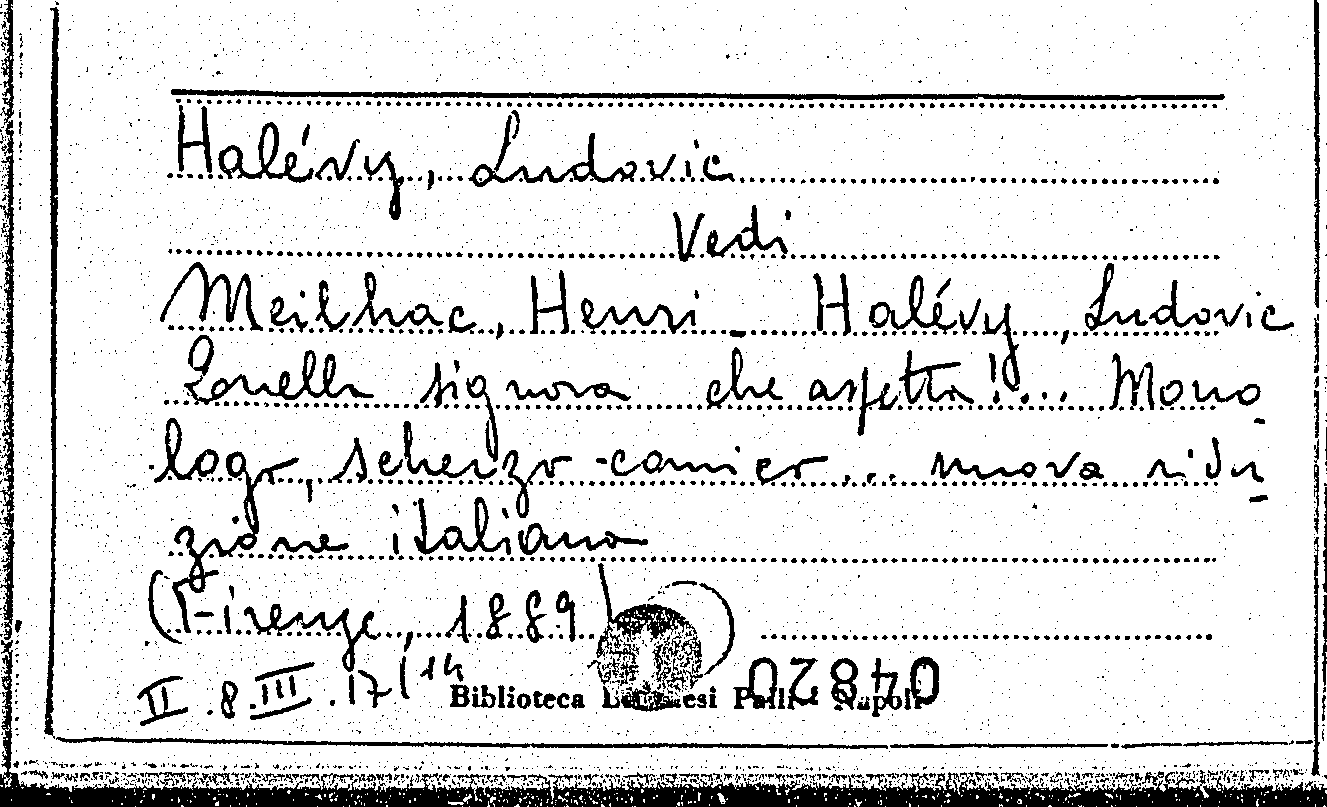 Halévy, Ludovic
Vedi
Meilhac, Henri - Halévy, Ludovic
Quella signora che aspetta!... Mono
logo, scherzo-comico... nuova ridu
zione italiana
(Firenze, 1889)
II.8.III.17(14
Biblioteca Lucchesi Palli - Napoli
04820